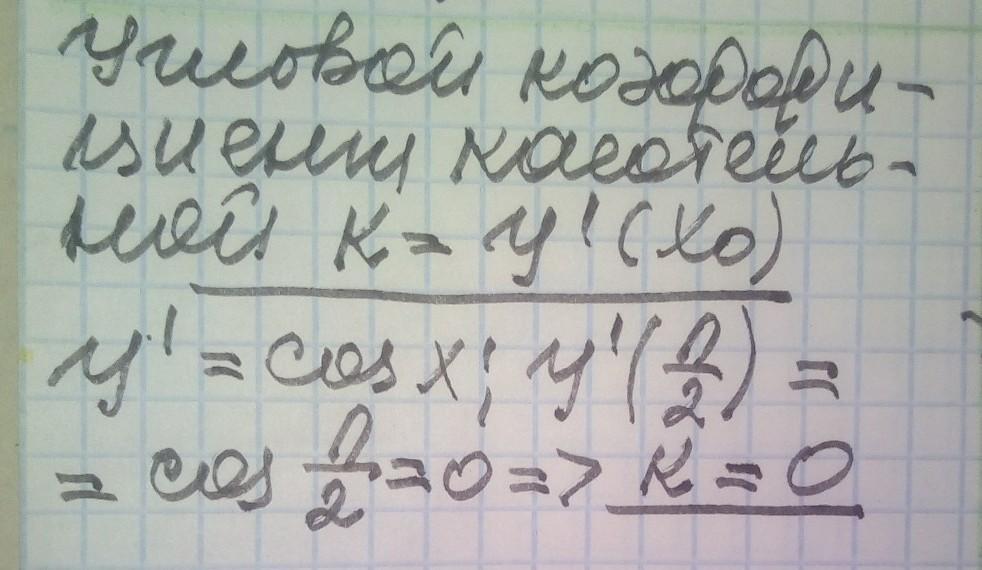 Угловой коэффи-
циент касатель-
ной K = y'(x₀)
y' = cos x; y'(π/2) =
= cos π/2 = 0 => K = 0